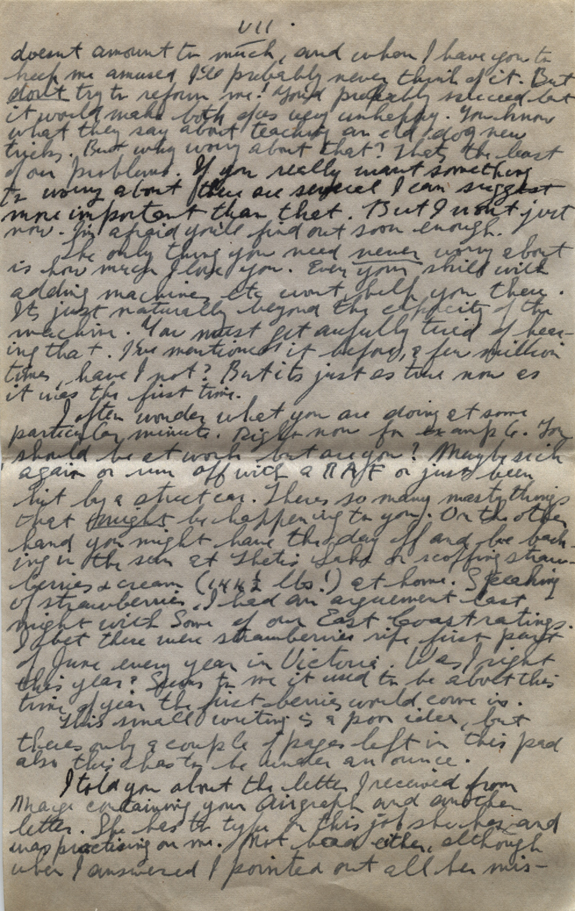 VII.
doesn't amount to much, and when I have you to
keep me amused, I'll probably never think of it. But
don't try to reform me! You'd probably succeed but
it would make both of us very unhappy. You know
what they say about teaching an old dog new
tricks. But why worry about that? That's the least
of our problems. If you really want something
to worry about there are several I can suggest
more important than that. But I won't just
now. I'm afraid you'll find out soon enough.
The only thing you need never worry about
is how much I love you. Even your skill with
adding machines etc won't help you there.
It's just naturally beyond the capacity of the
machine. You must get awfully tired of hear-
ing that. I've mentioned it before, a few million
times, have I not? But its just as true now as
it was the first time.
I often wonder what you are doing at some
particular minute. Right now for example. You
should be at work but are you? Maybe sick
again or run off with a RAF or just been
hit by a streetcar. There's so many nasty things
that might be happening to you. On the other
hand you might have the day off and be bask-
ing in the sun at Thetis Lake or scoffing straw-
berries & cream (144½ lbs!) at home. Speaking
of strawberries. I had an arguement last
night with some of our East Coast ratings.
I bet there were strawberries ripe first part
of June every year in Victoria. Was I right
this year? Seems to me it used to be about this
time of year the first berries would come in.
This small writing is a poor idea, but
theres only a couple of pages left in this pad
also this has to be under an ounce.
I told you about the letter I received from
Marge containing your airgraph and another
letter. She has to type in this job she has and
was practising on me. Not bad either, although
when I answered I pointed out all her mis-